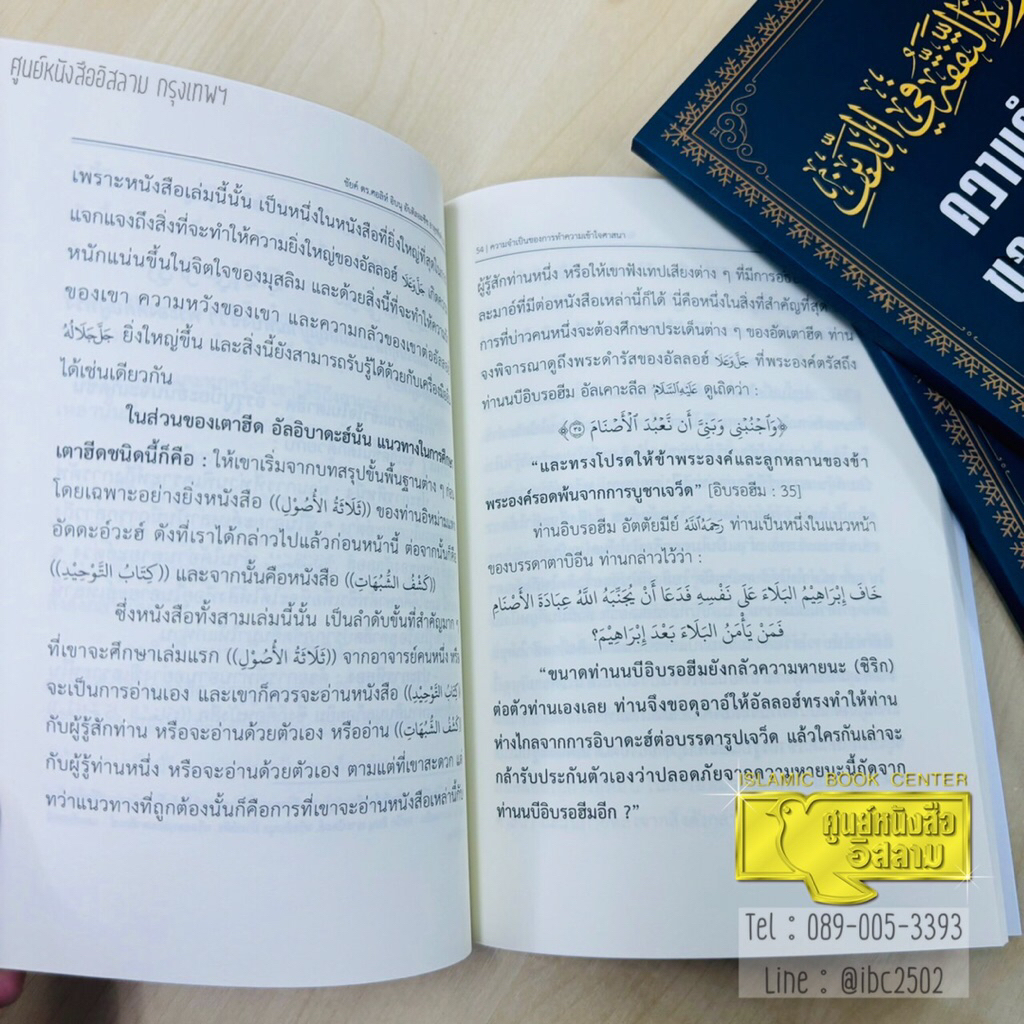 ศูนย์หนังสืออิสลาม กรุงเทพฯ
ชัยค์ ดร.ศอลิห์ อิบนุ
เพราะหนังสือเล่มนี้นั้น เป็นหนึ่งในหนังสือที่ยิ่งใหญ่ที่สุด
แจกแจงถึงสิ่งที่จะทำให้ความยิ่งใหญ่ของอัลลอฮ์ جَلَّ وَعَلَا
หนักแน่นขึ้นในจิตใจของมุสลิม และด้วยสิ่งนี้ที่จะทำให้ความ
ของเขา ความหวังของเขา และความกลัวของเขาต่อ
جَلَّ جَلَالُهُ ยิ่งใหญ่ขึ้น และสิ่งนี้ยังสามารถรับรู้ได้ด้วยกับ
ได้เช่นเดียวกัน
ในส่วนของเตาฮีด อัลอิบาดะฮ์นั้น แนวทางในการศึกษา
เตาฮีดชนิดนี้ก็คือ : ให้เขาเริ่มจากบทสรุปขั้นพื้นฐานต่าง ๆ ก่อน
โดยเฉพาะอย่างยิ่งหนังสือ ((ثَلَاثَةُ الأُصُوْلِ)) ของท่านอิหม่าม
อัดดะอ์วะฮ์ ดังที่เราได้กล่าวไปแล้วก่อนหน้านี้ ต่อจากนั้นก็คือ
((كِتَابُ التَّوْحِيْدِ)) และจากนั้นคือหนังสือ ((كَشْفُ الشُّبُهَاتِ))
ซึ่งหนังสือทั้งสามเล่มนี้นั้น เป็นลำดับขั้นที่สำคัญมาก ๆ
ที่เขาจะศึกษาเล่มแรก ((ثَلَاثَةُ الأُصُوْلِ)) จากอาจารย์คนหนึ่ง หรือ
จะเป็นการอ่านเอง และเขาก็ควรจะอ่านหนังสือ ((كِتَابُ التَّوْحِيْدِ))
กับผู้รู้สักท่าน หรือจะอ่านด้วยตัวเอง หรืออ่าน ((كَشْفُ الشُّبُهَاتِ))
กับผู้รู้ท่านหนึ่ง หรือจะอ่านด้วยตัวเอง ตามแต่ที่เขาสะดวก แต่
ทว่าแนวทางที่ถูกต้องนั้นก็คือการที่เขาจะอ่านหนังสือเหล่านี้กับ
54 | ความจำเป็นของการทำความเข้าใจศาสนา
ผู้รู้สักท่านหนึ่ง หรือให้เขาฟังเทปเสียงต่าง ๆ ที่มีการ
ละมาอ์ที่มีต่อหนังสือเหล่านี้ก็ได้ นี่คือหนึ่งในสิ่งที่สำคัญที่สุด
การที่บ่าวคนหนึ่งจะต้องศึกษาประเด็นต่าง ๆ ของอัตเตาฮีด ท่าน
จงพิจารณาดูถึงพระดำรัสของอัลลอฮ์ جَلَّ وَعَلَا ที่พระองค์ตรัสถึง
ท่านนบีอิบรอฮีม อัลเคาะลีล عَلَيْهِ السَّلَامُ ดูเถิดว่า :
﴿وَاجْنُبْنِي وَبَنِيَّ أَن نَّعْبُدَ الْأَصْنَامَ ﴿٣٥﴾﴾
“และทรงโปรดให้ข้าพระองค์และลูกหลานของข้า
พระองค์รอดพ้นจากการบูชาเจว็ด” [อิบรอฮีม : 35]
ท่านอิบรอฮีม อัตตัยมีย์ رَحِمَهُ اللَّهُ ท่านเป็นหนึ่งในแนวหน้า
ของบรรดาตาบิอีน ท่านกล่าวไว้ว่า :
خَافَ إِبْرَاهِيْمُ البَلَاءَ عَلَى نَفْسِهِ فَدَعَا أَنْ يُجَنِّبَهُ اللَّهُ عِبَادَةَ الأَصْنَامِ
فَمَنْ يَأْمَنُ البَلَاءَ بَعْدَ إِبْرَاهِيْمَ؟
“ขนาดท่านนบีอิบรอฮีมยังกลัวความหายนะ (ชิริก)
ต่อตัวท่านเองเลย ท่านจึงขอดุอาอ์ให้อัลลอฮ์ทรงทำให้ท่าน
ห่างไกลจากการอิบาดะฮ์ต่อบรรดารูปเจว็ด แล้วใครกันเล่าจะ
กล้ารับประกันตัวเองว่าปลอดภัยจากความหายนะนี้ถัดจาก
ท่านนบีอิบรอฮีมอีก ?”
التَّفَقُّهِ فِي الدِّينِ
ISLAMIC BOOK CENTER
ศูนย์หนังสือ
อิสลาม
Tel : 089-005-3393
Line : @ibc2502